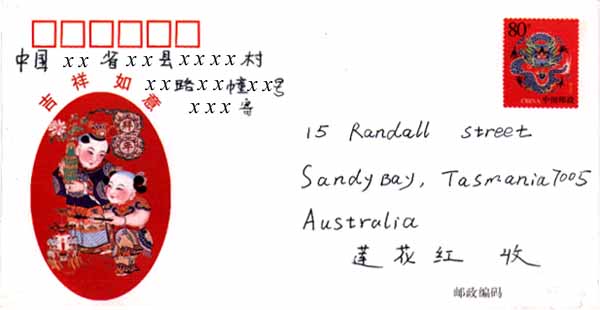 中国 xx 省 xx 县 xxxx 村
xx 路 xx 幢 xx 号
xxx 寄
吉祥如意
80
CHINA 中国邮政
15 Randall street
Sandy Bay, Tasmania 7005
Australia
莲花红 收
邮政编码